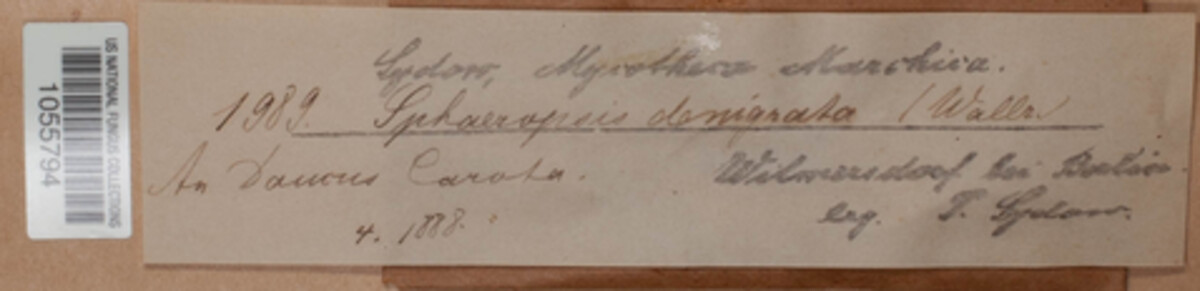 US NATIONAL FUNGUS COLLECTIONS
1055794
Sydow, Mycotheca Marchica.
1989. Sphaeropsis denigrata (Wallr.
An Daucus Carota.
4. 1888.
Wilmersdorf bei Berlin
leg. P. Sydow.